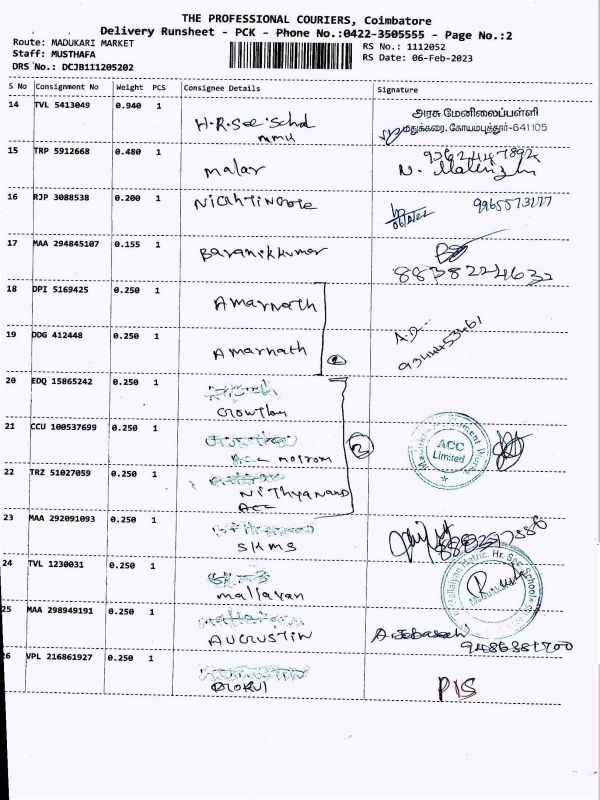 THE PROFESSIONAL COURIERS, Coimbatore
Delivery Runsheet - PCK - Phone No.:0422-3505555 - Page No.:2
Route: MADUKARI MARKET
RS No.: 1112052
Staff: MUSTHAFA
RS Date: 06-Feb-2023
DRS No.: DCJB111205202
S No Consignment No Weight PCS Consignee Details Signature
14 TVL 5413049 0.940 1 H.R.See School
அரசு மேனிலைப்பள்ளி
மதுக்கரை, கோயமபுத்தூர்-641 105
15 TRP 5912668 0.480 1 malar
16 RJP 3088538 0.200 1
17 MAA 294845107 0.155 1 Baranikkumar
8838224632
18 DPI 5169425 0.250 1 Amarnath
19 DDG 412448 0.250 1 Amarnath
9344453461
20 EDQ 15865242 0.250 1
Crowtion
21 CCU 100537699 0.250 1
ACC
Limited
22 TRZ 51027059 0.250 1
Nithyanand
Acc
2
23 MAA 292091093 0.250 1
SKMS
24 TVL 1230031 0.250 1
mallayan
25 MAA 298949191 0.250 1
AUGUSTIN
9486881700
26 VPL 216861927 0.250 1
GOKUl
PIS